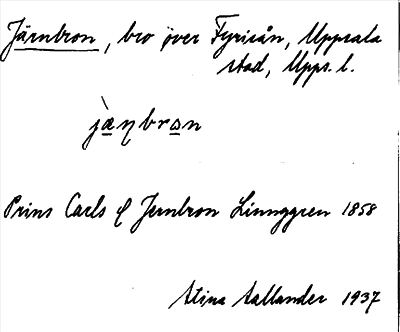 Järnbron, bro över Fyrisån, Uppsala
stad, Upps. l.
jàηbron
Prins Carls l Jernbron Linnggren 1858
Stina Aallander 1937